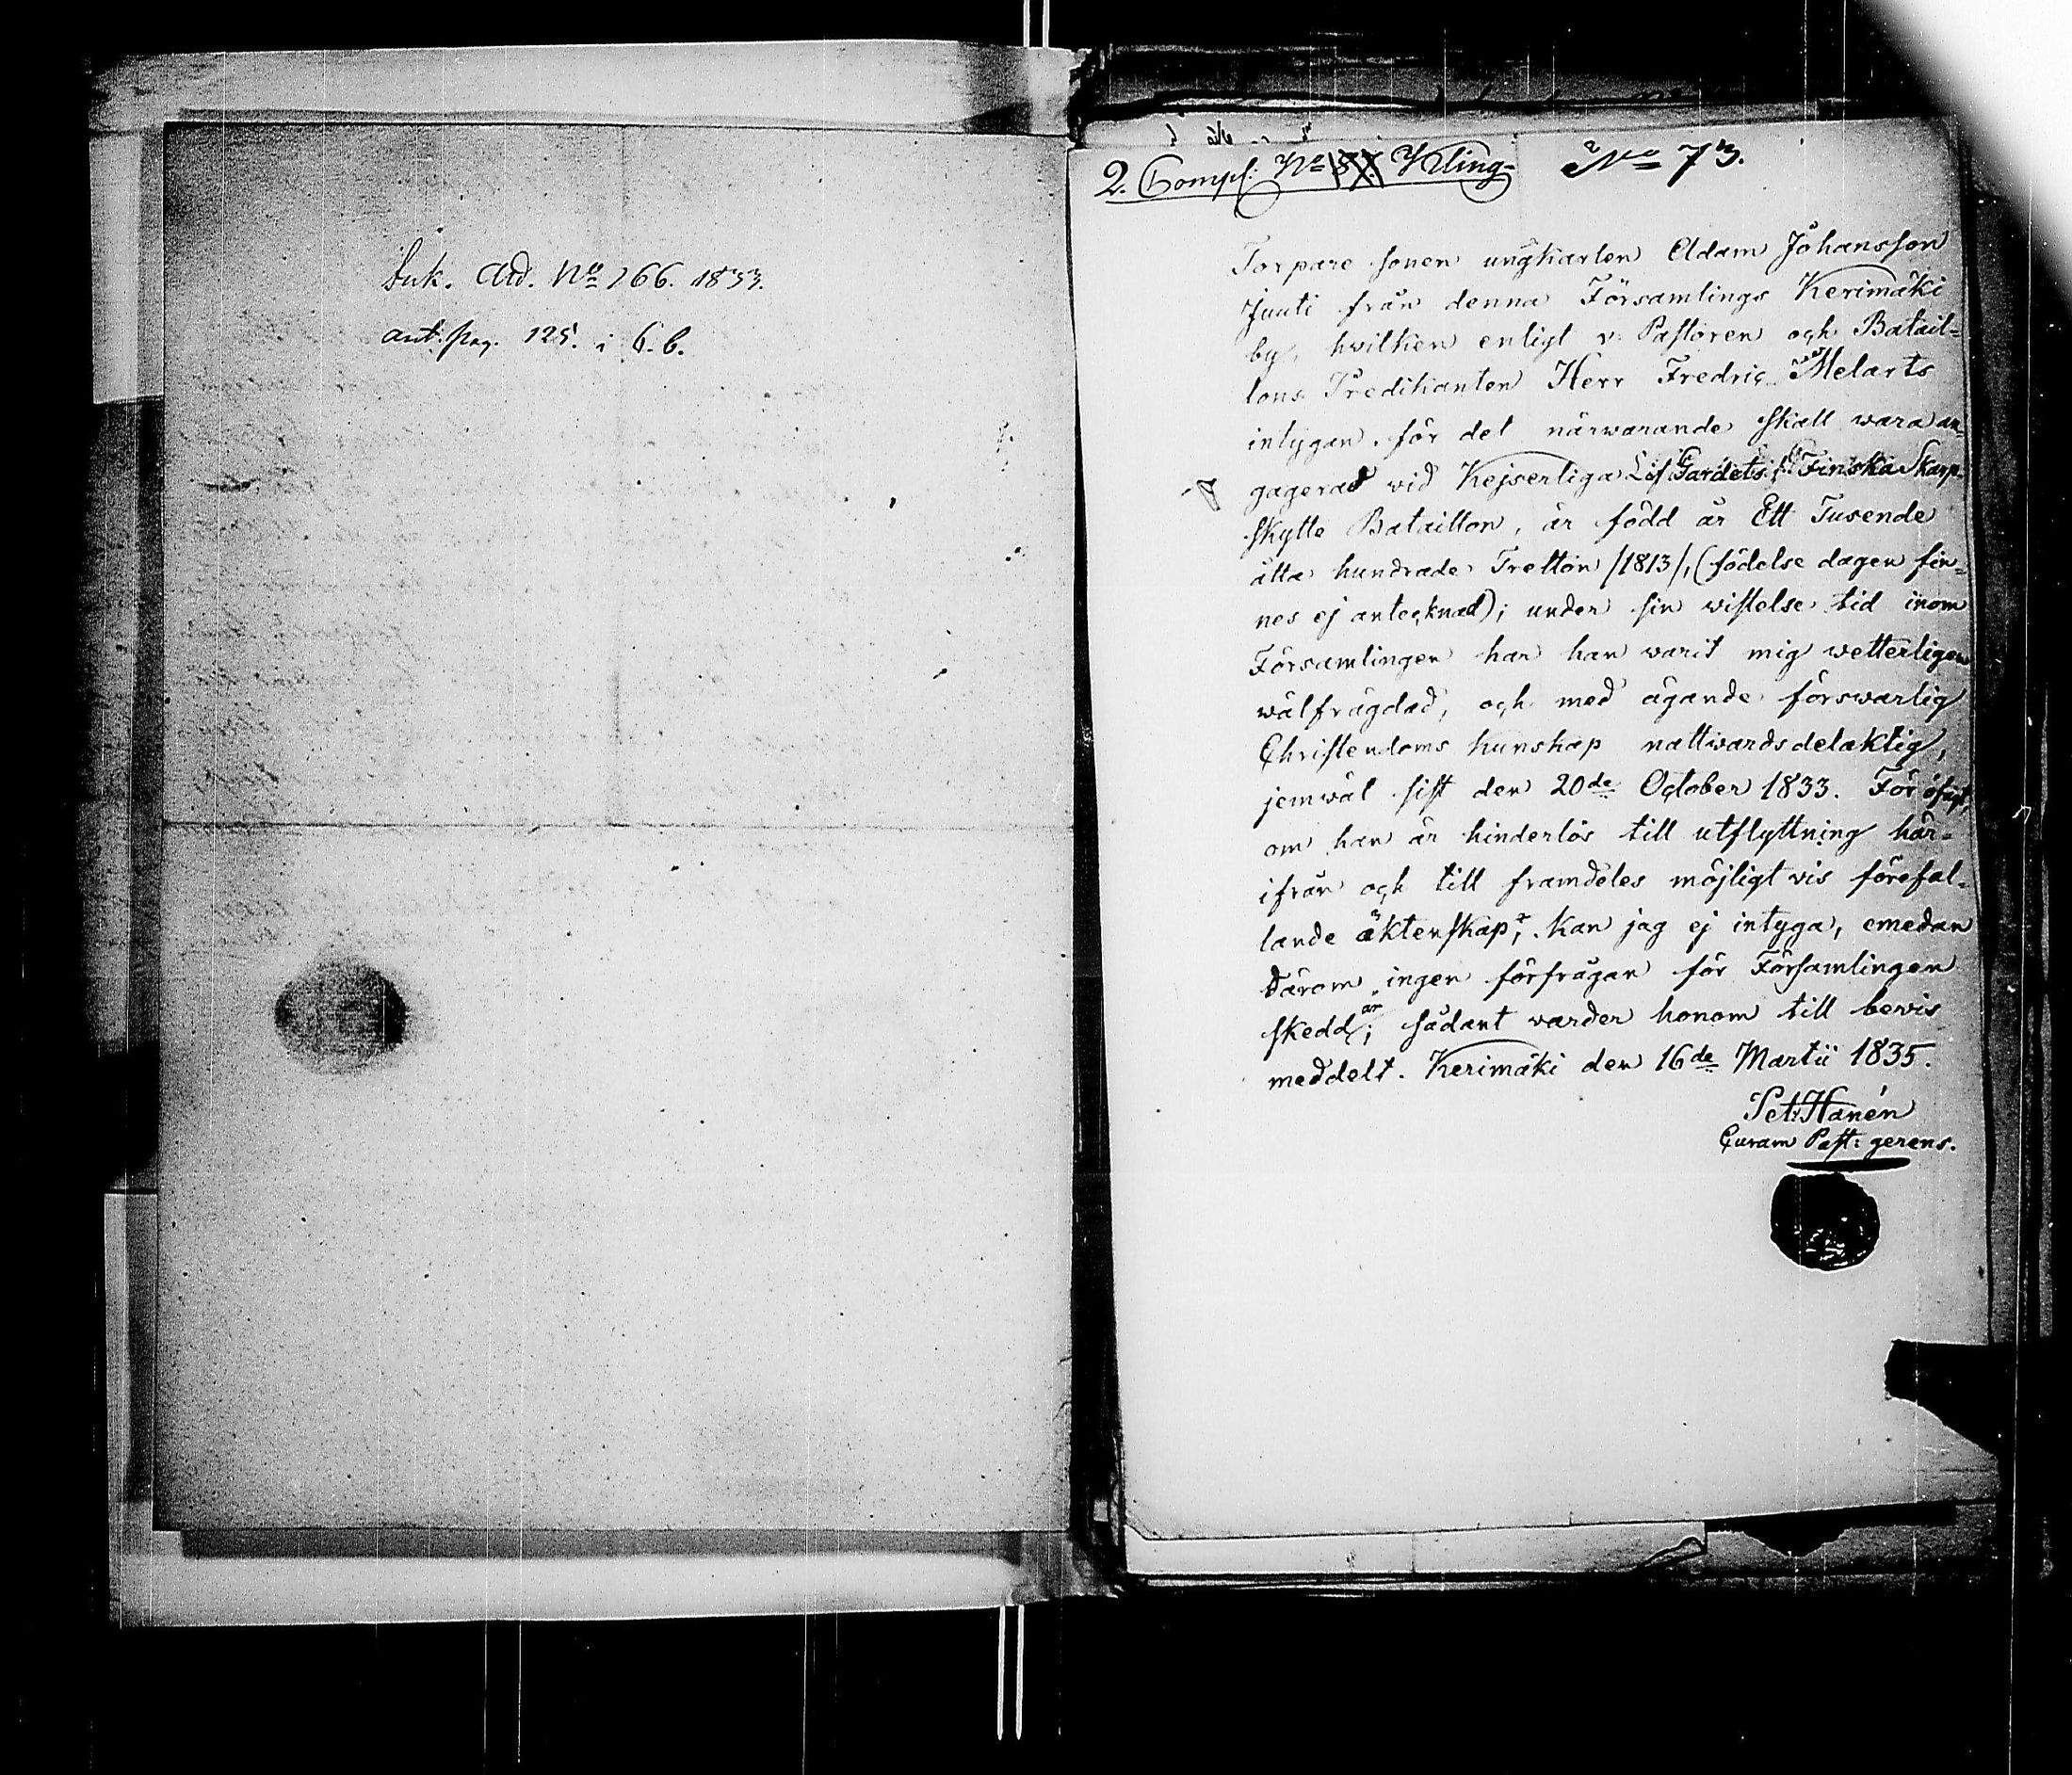 Ink. Ad. No 166. 1833.
ant. pag. 125. i C. b.
2. Comp: No Kling- No 73.
Torpare sonen ungkarlen Adam Johansson
Juuti från denna Församlings Kerimäki
by, hwilken enligt v. Pastoren och Batail-
lons Predikanten Herr Fredric Melarts
intygan, för det närwarande skall wara an-
gagerad wid Kejserliga Lif Gardets Finska Skarp-
skytte Bataillon, är född år Ett Tusende
åtta hundrade Tretton /1813/, (födelse dagen fin-
nes ej antecknad); under sin wistelse tid inom
Församlingen har han warit mig wetterligen
wälfrägdad, och med ägande förswarlig
Christendoms kunskap nattwards delaktig,
jemwäl sist den 20de October 1833. För öfrigt,
om han är hinderlös till utflyttning här-
ifrån och till framdeles möjligt vis förefal-
lande äktenskap, kan jag ej intyga, emedan
därom ingen förfrågan för Församlingen
skedd är; sådant warder honom till bewis
meddelt. Kerimäki den 16de Martii 1835.
Pet. Hanén
Curam Past: gerens.